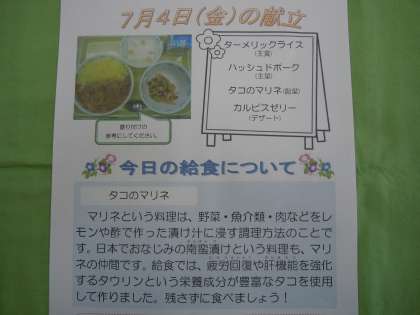 7月4日(金)の献立
ターメリックライス
(主食)
ハッシュドポーク
(主菜)
タコのマリネ(副菜)
カルピスゼリー
(デザート)
盛り付けの
参考にしてください。
今日の給食について
タコのマリネ
マリネという料理は、野菜・魚介類・肉などをレ
モンや酢で作った漬け汁に浸す調理方法のことで
す。日本でおなじみの南蛮漬けという料理も、マリ
ネの仲間です。給食では、疲労回復や肝機能を強化
するタウリンという栄養成分が豊富なタコを使用
して作りました。残さずに食べましょう！